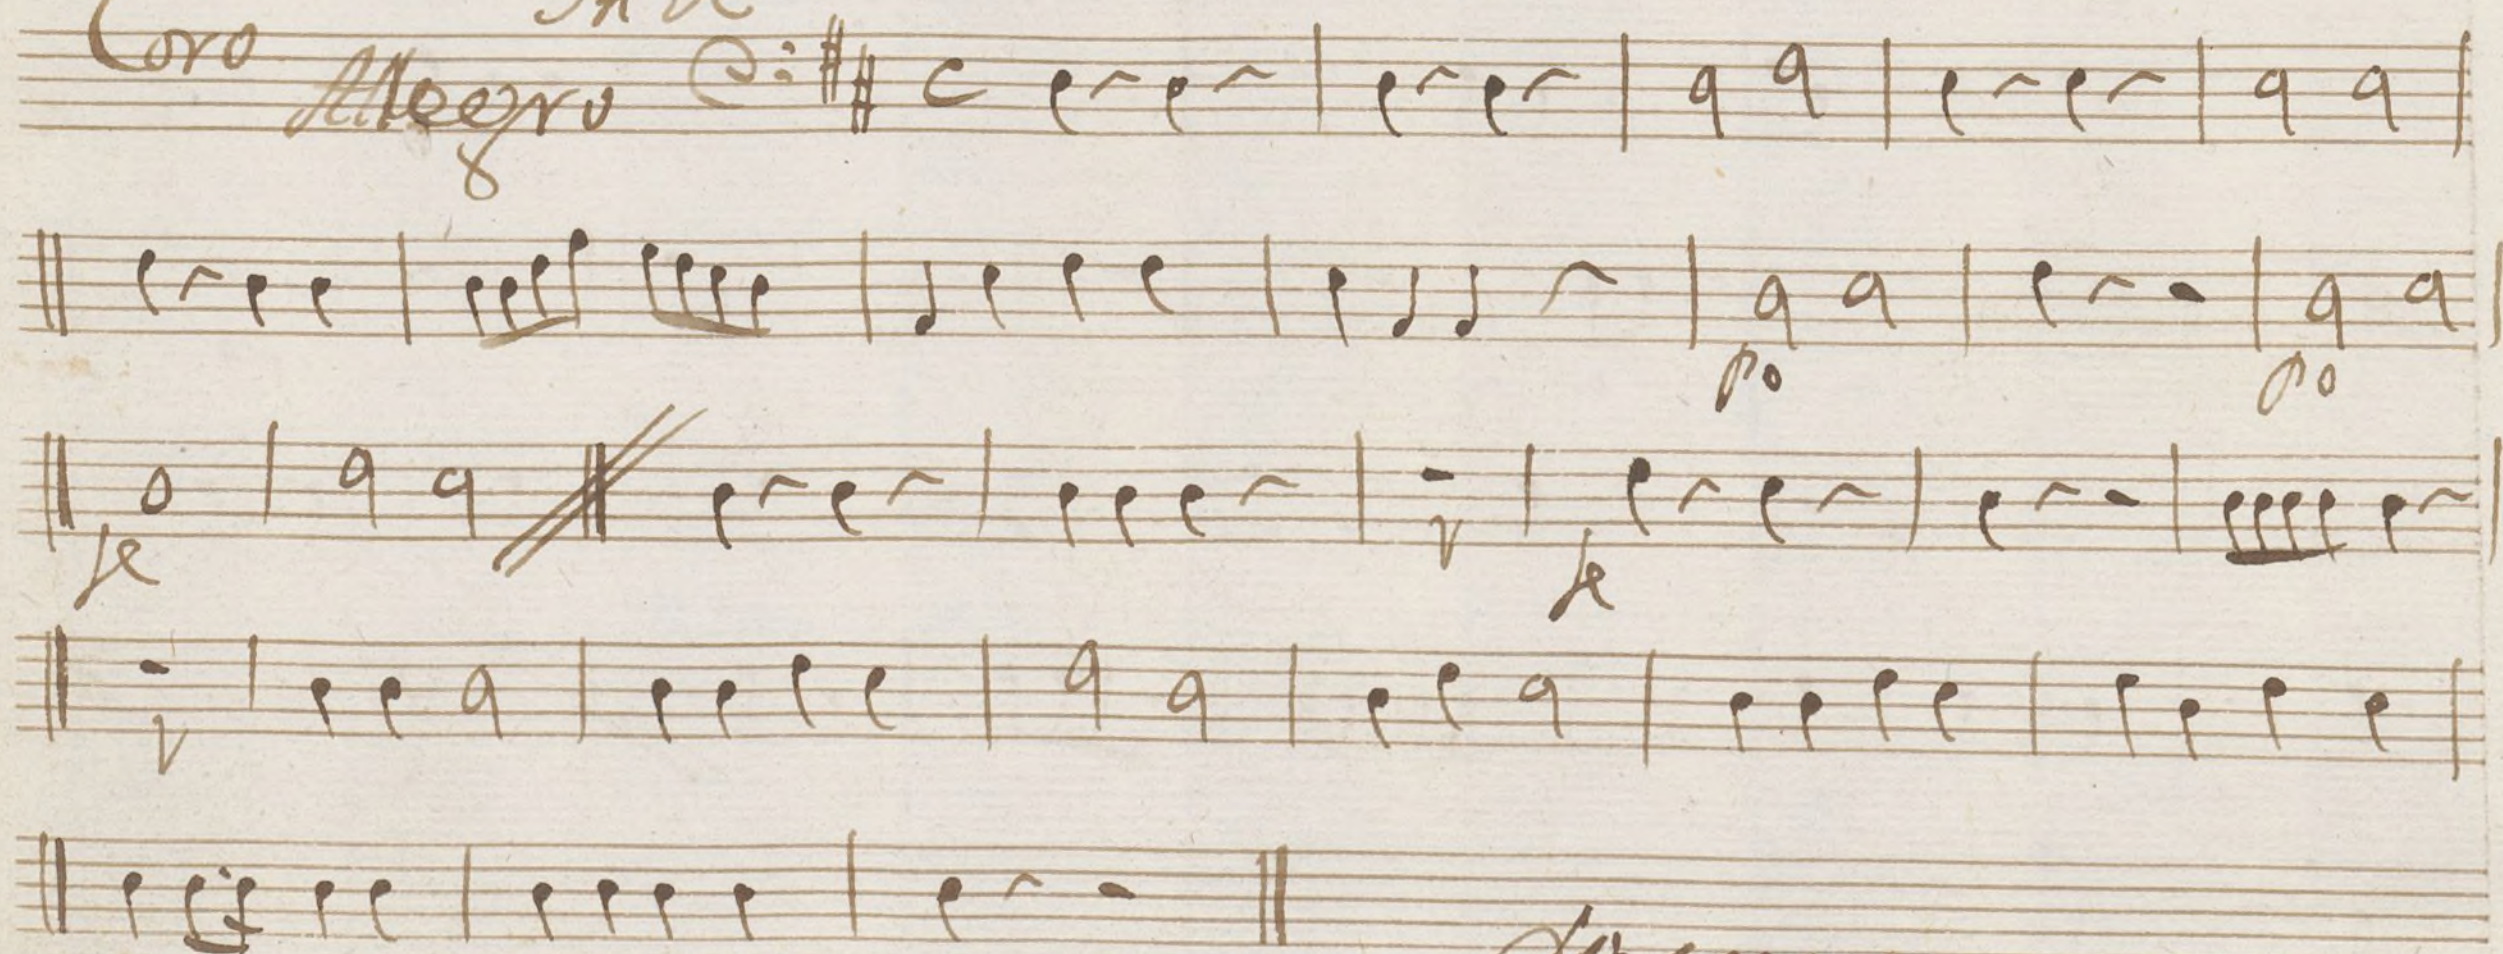 Coro
Allegro
po po
fe fe